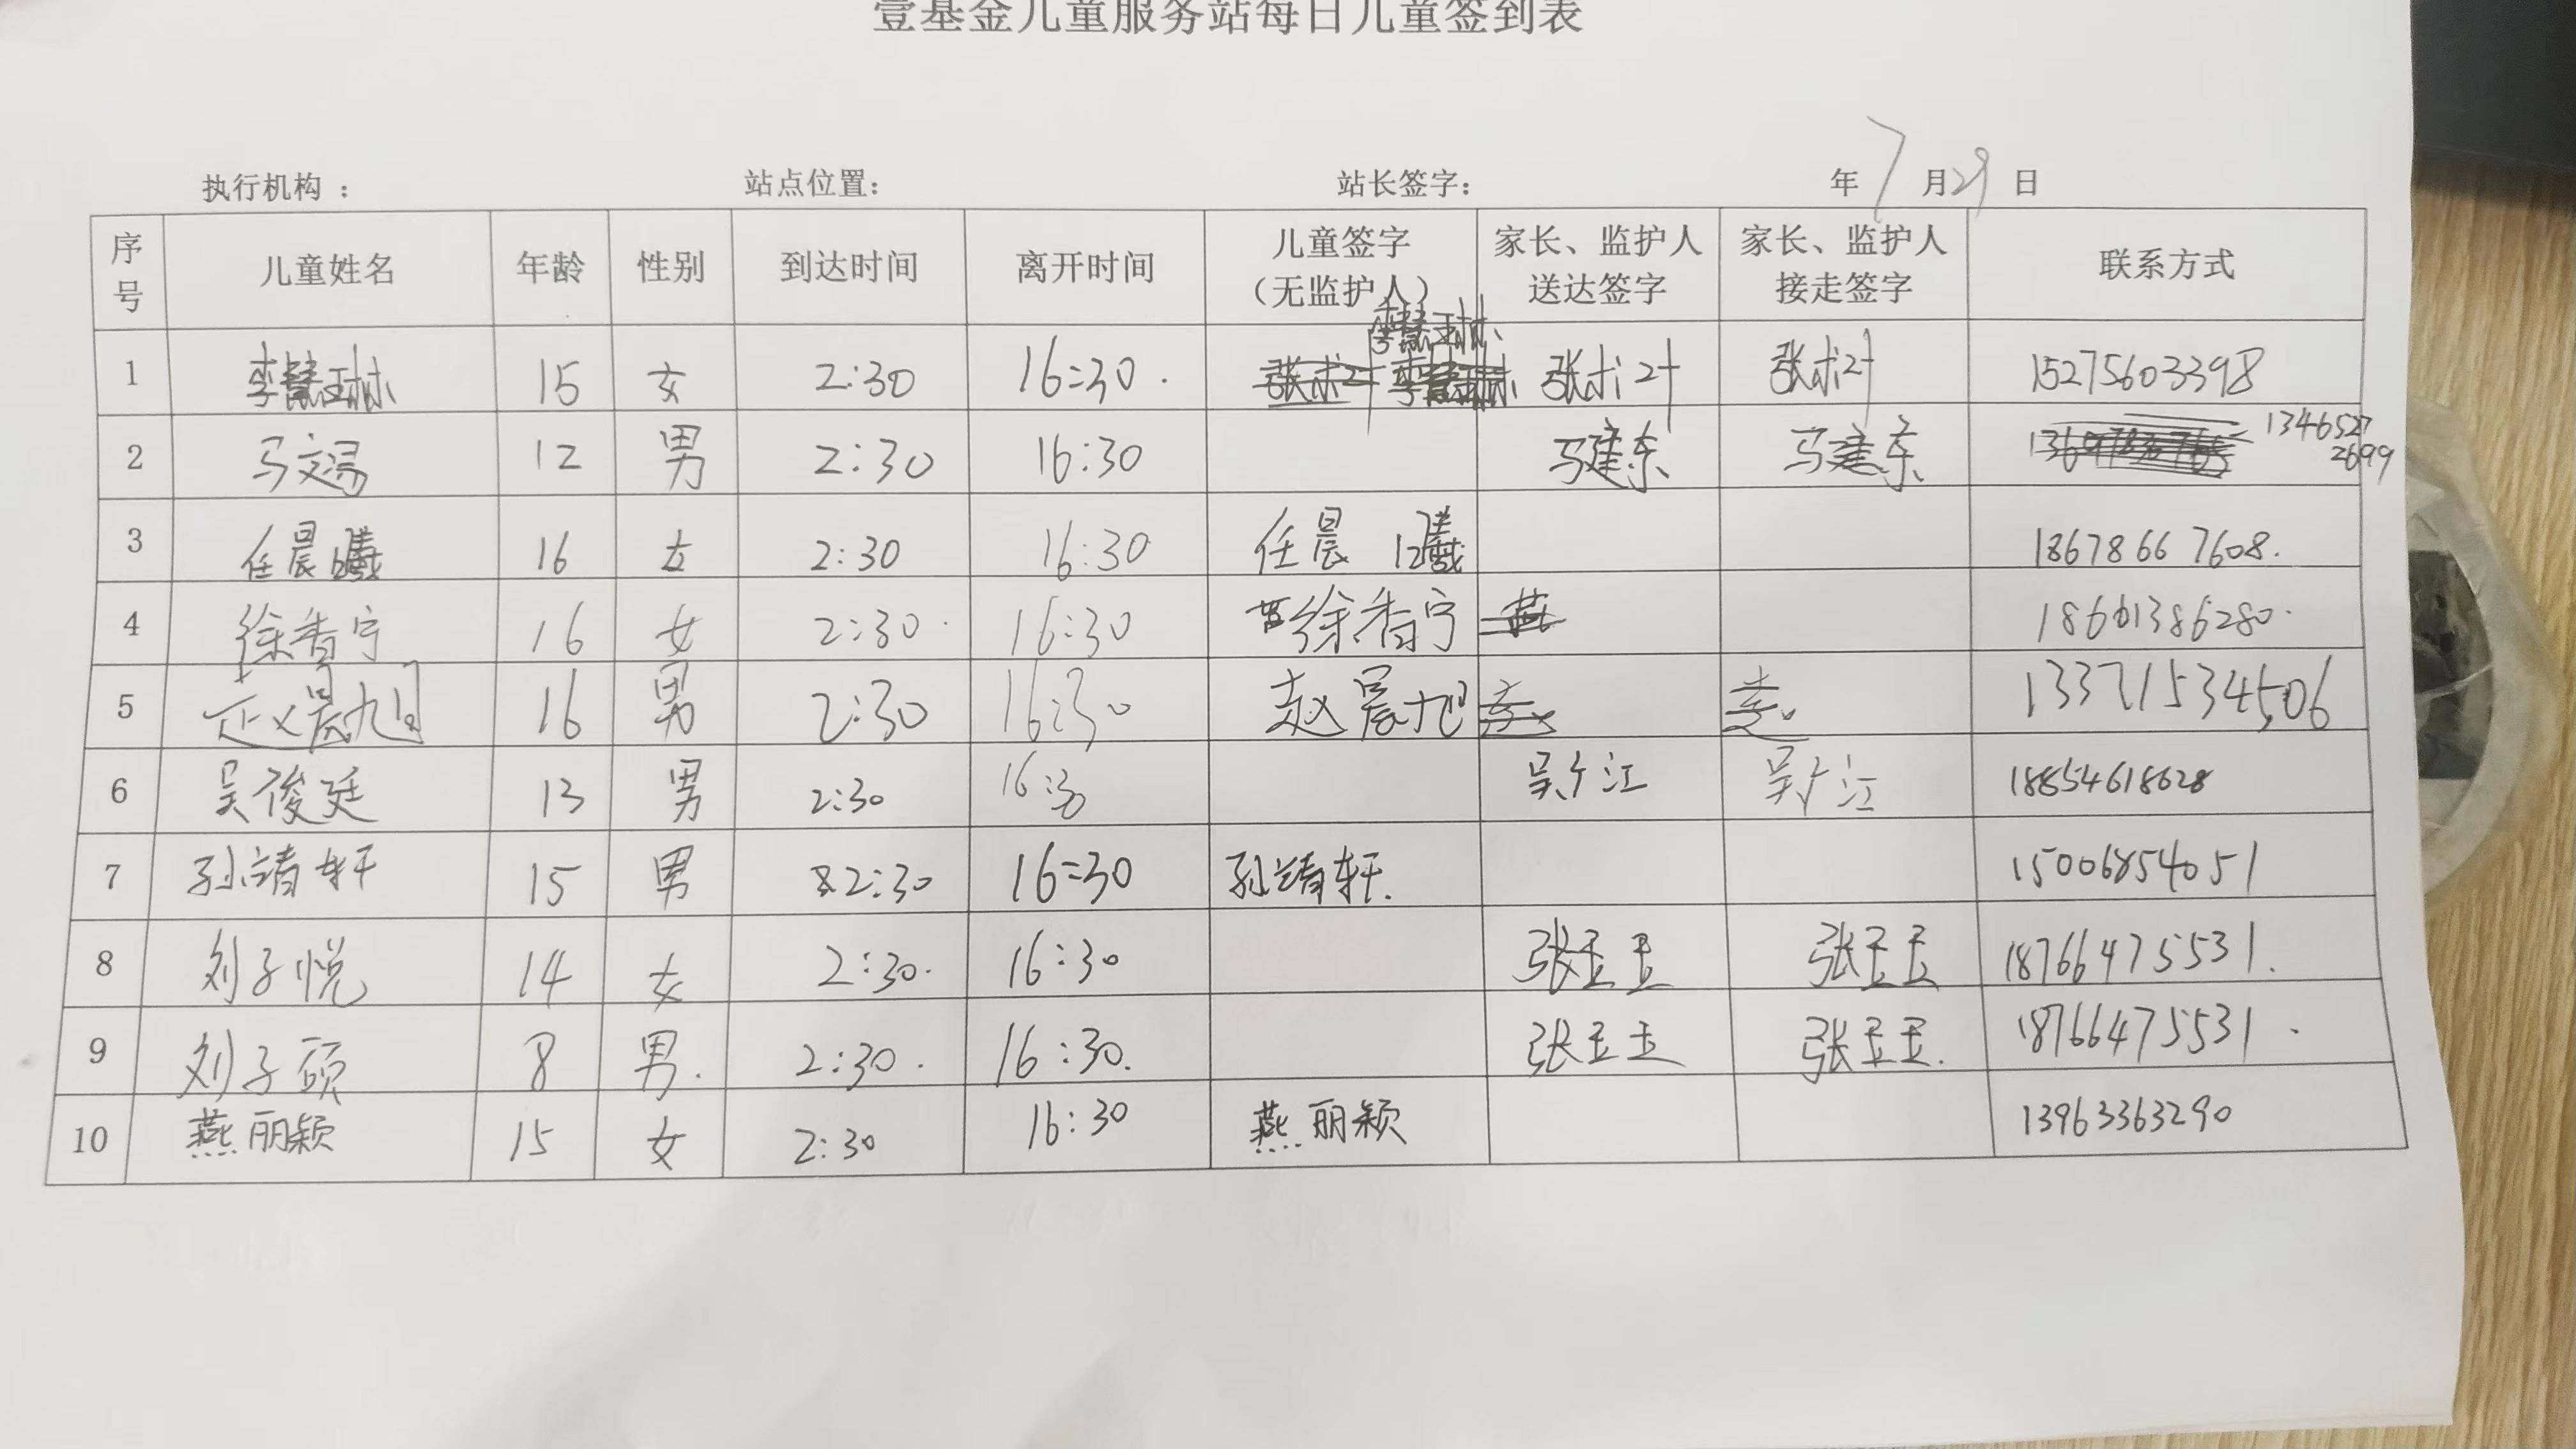 壹基金儿童服务站每日儿童签到表
执行机构 : 站点位置: 站长签字: 年 7 月 29 日
序号 儿童姓名 年龄 性别 到达时间 离开时间 儿童签字（无监护人） 家长、监护人送达签字 家长、监护人接走签字 联系方式
1 李慧琳 15 女 2:30 16:30 李慧琳 15275603398
2 马文 12 男 2:30 16:30 马建东 马建东 13465272699
3 任晨曦 16 女 2:30 16:30 任晨曦 18678667608
4 徐香宁 16 女 2:30 16:30 徐香宁
5 赵晨旭 16 男 2:30 16:30 赵晨旭 13371534506
6 吴俊廷 13 男 2:30 16:30 吴广江 吴广江 18854618628
7 孙靖轩 15 男 2:30 16:30 孙靖轩 15006854051
8 刘子悦 14 女 2:30 16:30 张玉玉 张玉玉 18766475531
9 刘子硕 8 男 2:30 16:30 张玉玉 张玉玉 18766475531
10 燕丽颖 15 女 2:30 16:30 燕丽颖 13963363290